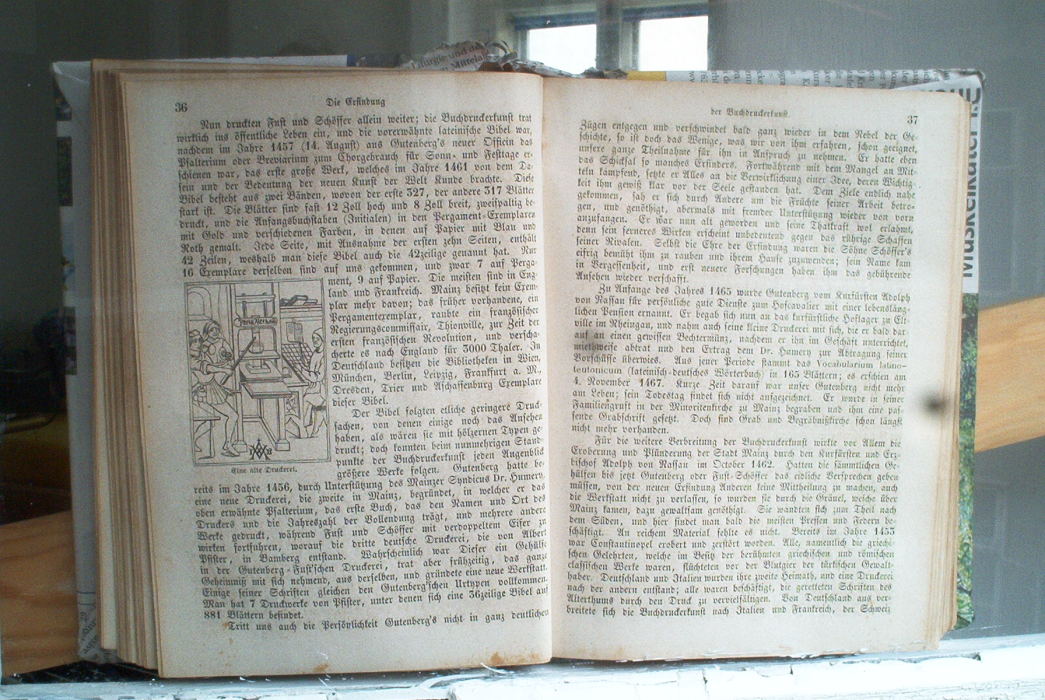 36
Die Erfindung
Nun druckten Fust und Schöffer allein weiter; die Buchdruckerkunst trat
wirklich ins öffentliche Leben ein, und die vorerwähnte lateinische Bibel war,
nachdem im Jahre 1457 (14. August) aus Gutenberg's neuer Officin das
Psalterium oder Breviarium zum Chorgebrauch für Sonn- und Festtage er-
schienen war, das erste große Werk, welches im Jahre 1461 von dem Da-
sein und der Bedeutung der neuen Kunst der Welt Kunde brachte. Diese
Bibel besteht aus zwei Bänden, wovon der erste 327, der andere 317 Blätter
stark ist. Die Blätter sind fast 12 Zoll hoch und 8 Zoll breit, zweispaltig be-
druckt, und die Anfangsbuchstaben (Initialen) in den Pergament-Exemplaren
mit Gold und verschiedenen Farben, in denen auf Papier mit Blau und
Roth gemalt. Jede Seite, mit Ausnahme der ersten zehn Seiten, enthält
42 Zeilen, weshalb man diese Bibel auch die 42zeilige genannt hat. Nur
16 Exemplare derselben sind auf uns gekommen, und zwar 7 auf Perga-
ment, 9 auf Papier. Die meisten sind in Eng-
land und Frankreich. Mainz besitzt kein Exem-
plar mehr davon; das früher vorhandene, ein
Pergamentexemplar, raubte ein französischer
Regierungscommissair, Thionville, zur Zeit der
ersten französischen Revolution, und verscha-
cherte es nach England für 3000 Thaler. In
Deutschland besitzen die Bibliotheken in Wien,
München, Berlin, Leipzig, Frankfurt a. M.,
Dresden, Trier und Aschaffenburg Exemplare
dieser Bibel.
Der Bibel folgten etliche geringere Druck-
sachen, von denen einige noch das Ansehen
haben, als wären sie mit hölzernen Typen ge-
druckt; doch konnten beim nunmehrigen Stand-
punkte der Buchdruckerkunst jeden Augenblick
größere Werke folgen. Gutenberg hatte be-
Eine alte Druckerei.
reits im Jahre 1456, durch Unterstützung des Mainzer Syndicus Dr. Humery,
eine neue Druckerei, die zweite in Mainz, begründet, in welcher er das
oben erwähnte Psalterium, das erste Buch, das den Namen und Ort des
Druckers und die Jahreszahl der Vollendung trägt, und mehrere andere
Werke gedruckt, während Fust und Schöffer mit verdoppeltem Eifer zu
wirken fortfuhren, worauf die dritte deutsche Druckerei, die von Albert
Pfister, in Bamberg entstand. Wahrscheinlich war Dieser ein Gehülfe
in der Gutenberg-Fust'schen Druckerei, trat aber frühzeitig, das ganze
Geheimniß mit sich nehmend, aus derselben, und gründete eine neue Werkstatt.
Einige seiner Schriften gleichen den Gutenberg'schen Urtypen vollkommen.
Man hat 7 Druckwerke von Pfister, unter denen sich eine 36zeilige Bibel auf
881 Blättern befindet.
Tritt uns auch die Persöylichkeit Gutenberg's nicht in ganz deutlichen
der Buchdruckerkunst.
37
Zügen entgegen und verschwindet bald ganz wieder in dem Nebel der Ge-
schichte, so ist doch das Wenige, was wir von ihm erfahren, schon geeignet,
unsere ganze Theilnahme für ihn in Anspruch zu nehmen. Er hatte eben
das Schicksal so manches Erfinders. Fortwährend mit dem Mangel an Mit-
teln kämpfend, setzte er Alles an die Verwirklichung einer Idee, deren Wichtig-
keit ihm gewiß klar vor der Seele gestanden hat. Dem Ziele endlich nahe
gekommen, sah er sich durch Andere um die Früchte seiner Arbeit betro-
gen, und genöthigt, abermals mit fremder Unterstützung wieder von vorn
anzufangen. Er war nun alt geworden und seine Thatkraft wol erlahmt,
denn sein ferneres Wirken erscheint unbedeutend gegen das rührige Schaffen
seiner Rivalen. Selbst die Ehre der Erfindung waren die Söhne Schöffer's
eifrig bemüht ihm zu rauben und ihrem Hause zuzuwenden; sein Name kam
in Vergessenheit, und erst neuere Forschungen haben ihm das gebührende
Ansehen wieder verschafft.
Zu Anfange des Jahres 1465 wurde Gutenberg vom Kurfürsten Adolph
von Nassau für persönliche gute Dienste zum Hofcavalier mit einer lebensläng-
lichen Pension ernannt. Er begab sich nun an das kurfürstliche Hoflager zu Elt-
ville im Rheingau, und nahm auch seine kleine Druckerei mit sich, die er bald dar-
auf an einen gewissen Bechtermünz, nachdem er ihn im Geschäft unterrichtet,
miethweise abtrat und den Ertrag dem Dr. Humery zur Abtragung seiner
Vorschüsse überwies. Aus jener Periode stammt das Vocabularium latino-
teutonicum (lateinisch-deutsches Wörterbuch) in 165 Blättern; es erschien am
4. November 1467. Kurze Zeit darauf war unser Gutenberg nicht mehr
am Leben; sein Todestag findet sich nicht aufgezeichnet. Er wurde in seiner
Familiengruft in der Minoritenkirche zu Mainz begraben und ihm eine pas-
sende Grabschrift gesetzt. Doch sind Grab und Begräbnißkirche schon längst
nicht mehr vorhanden.
Für die weitere Verbreitung der Buchdruckerkunst wirkte vor Allem die
Eroberung und Plünderung der Stadt Mainz durch den Kurfürsten und Erz-
bischof Adolph von Nassau im October 1462. Hatten die sämmtlichen Ge-
hülfen bis jetzt Gutenberg oder Fust-Schöffer das eidliche Versprechen geben
müssen, von der neuen Erfindung Anderen keine Mittheilung zu machen, auch
die Werkstatt nicht zu verlassen, so wurden sie durch die Gräuel, welche über
Mainz kamen, dazu gewaltsam genöthigt. Sie wandten sich zum Theil nach
dem Süden, und hier findet man bald die meisten Pressen und Federn be-
schäftigt. An reichem Material fehlte es nicht. Bereits im Jahre 1453
war Constantinopel erobert und zerstört worden. Alle, namentlich die griechi-
schen Gelehrten, welche im Besitz der berühmten griechischen und römischen
classischen Werke waren, flüchteten vor der Blutgier der türkischen Gewalt-
haber. Deutschland und Italien wurden ihre zweite Heimath, und eine Druckerei
nach der andern entstand; alle waren beschäftigt, die geretteten Schriften des
Alterthums durch den Druck zu vervielfältigen. Von Deutschland aus ver-
breitete sich die Buchdruckerkunst nach Italien und Frankreich, der Schweiz